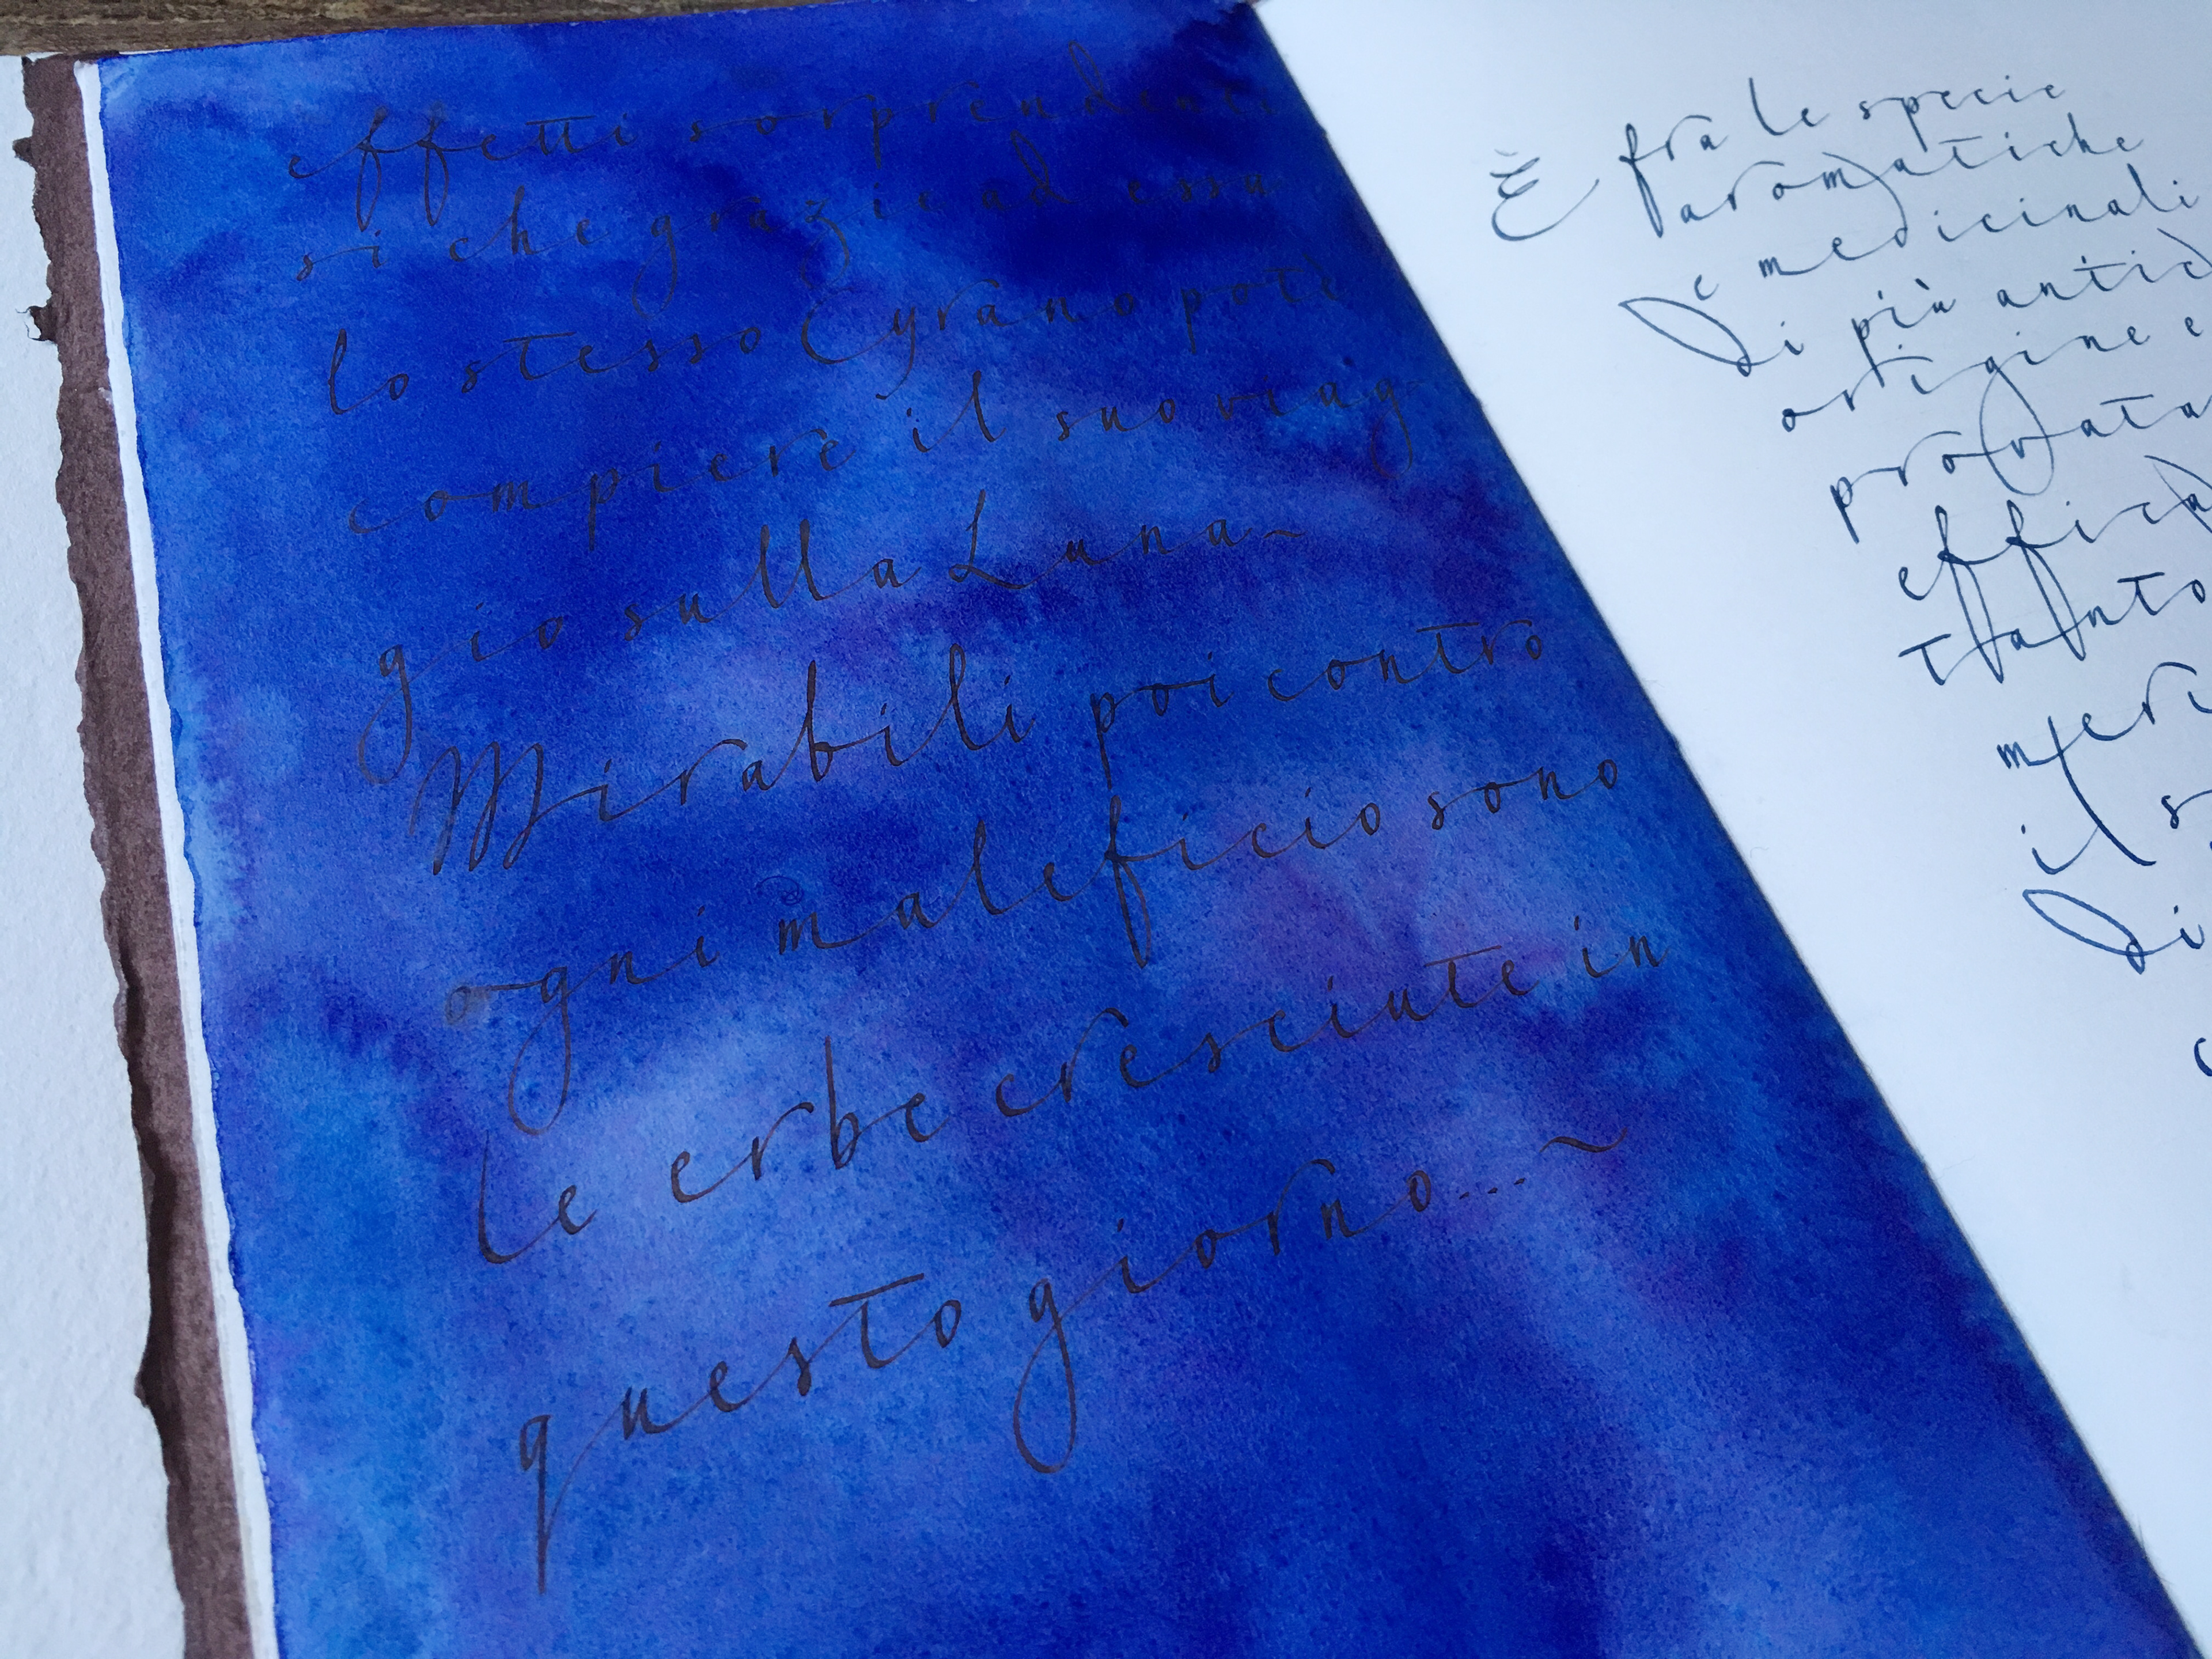 effetti sorprendenti
sì che grazie ad essa
lo stesso Cyrano potè
compiere il suo viag-
gio sulla Luna~
Mirabili poi contro
ogni maleficio sono
le erbe cresciute in
questo giorno...~
È fra le specie
aromatiche
e medicinali
di più
origine e
provata
tanto
il
di